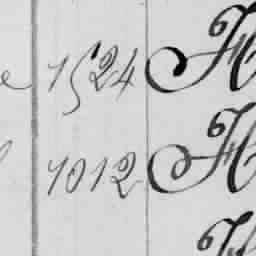 1524 H
1012 H
H